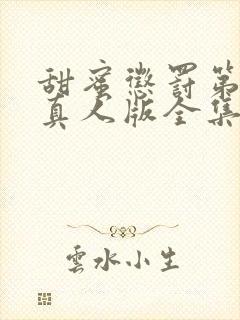 甜蜜懲罰第
真人版全集
雲水小生